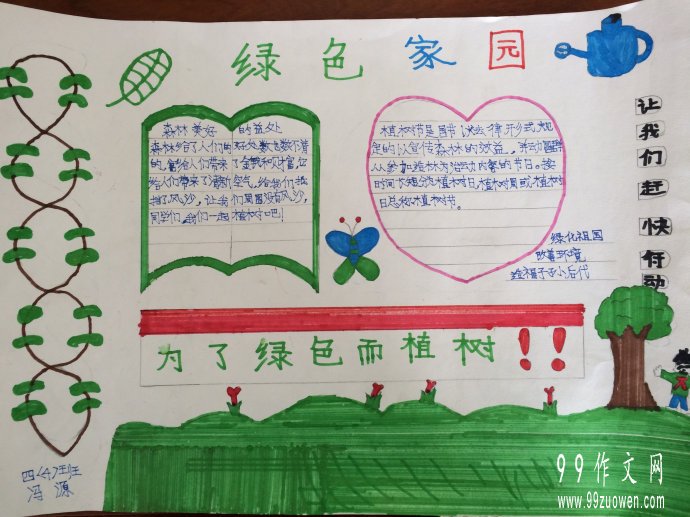 绿色家园
森林美好 的益处
森林给了人们的好处数也数不清
的,它给人们带来了金钱和财富,它
给人们带来了清新空气,给我们抵
挡了风沙,让我们周围没有风沙,
同学们,我们一起植树吧!
植树节是国家以法律形式规
定的以宣传森林的效益,并动员群
众参加造林为活动内容的节日。按
时间长短分为植树日、植树周或植树
日总称植树节。
绿化祖国
改善环境
造福子子小后代
让我们赶快行动
为了绿色而植树!!
四〈4〉班
冯源
99作文网
www.99zuowen.com